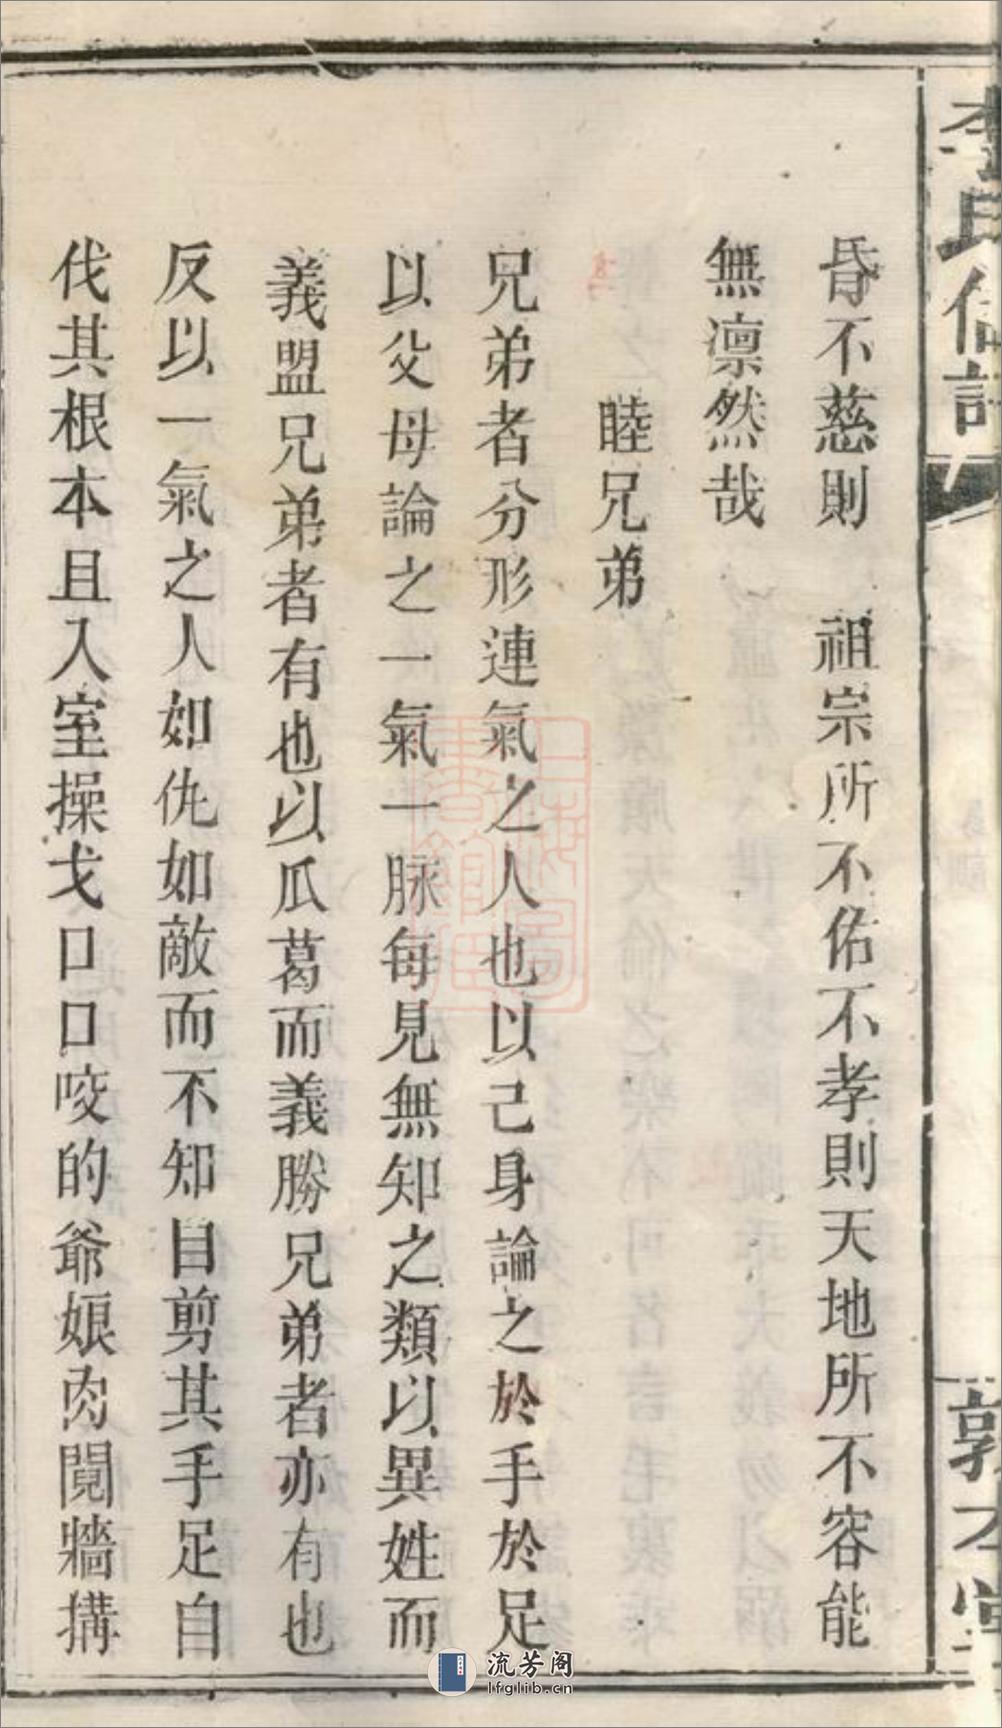 李氏信譜
敦本堂
昏不慈則　祖宗所不佑不孝則天地所不容能
無凛然哉
睦兄弟
兄弟者分形連氣之人也以己身論之於手於足
以父母論之一氣一脉每見無知之類以異姓而
義盟兄弟者有也以瓜葛而義勝兄弟者亦有也
反以一氣之人如仇如敵而不知自剪其手足自
伐其根本且入室操戈口口咬的爺娘肉鬩牆搆
流芳阁
lfglib.cn